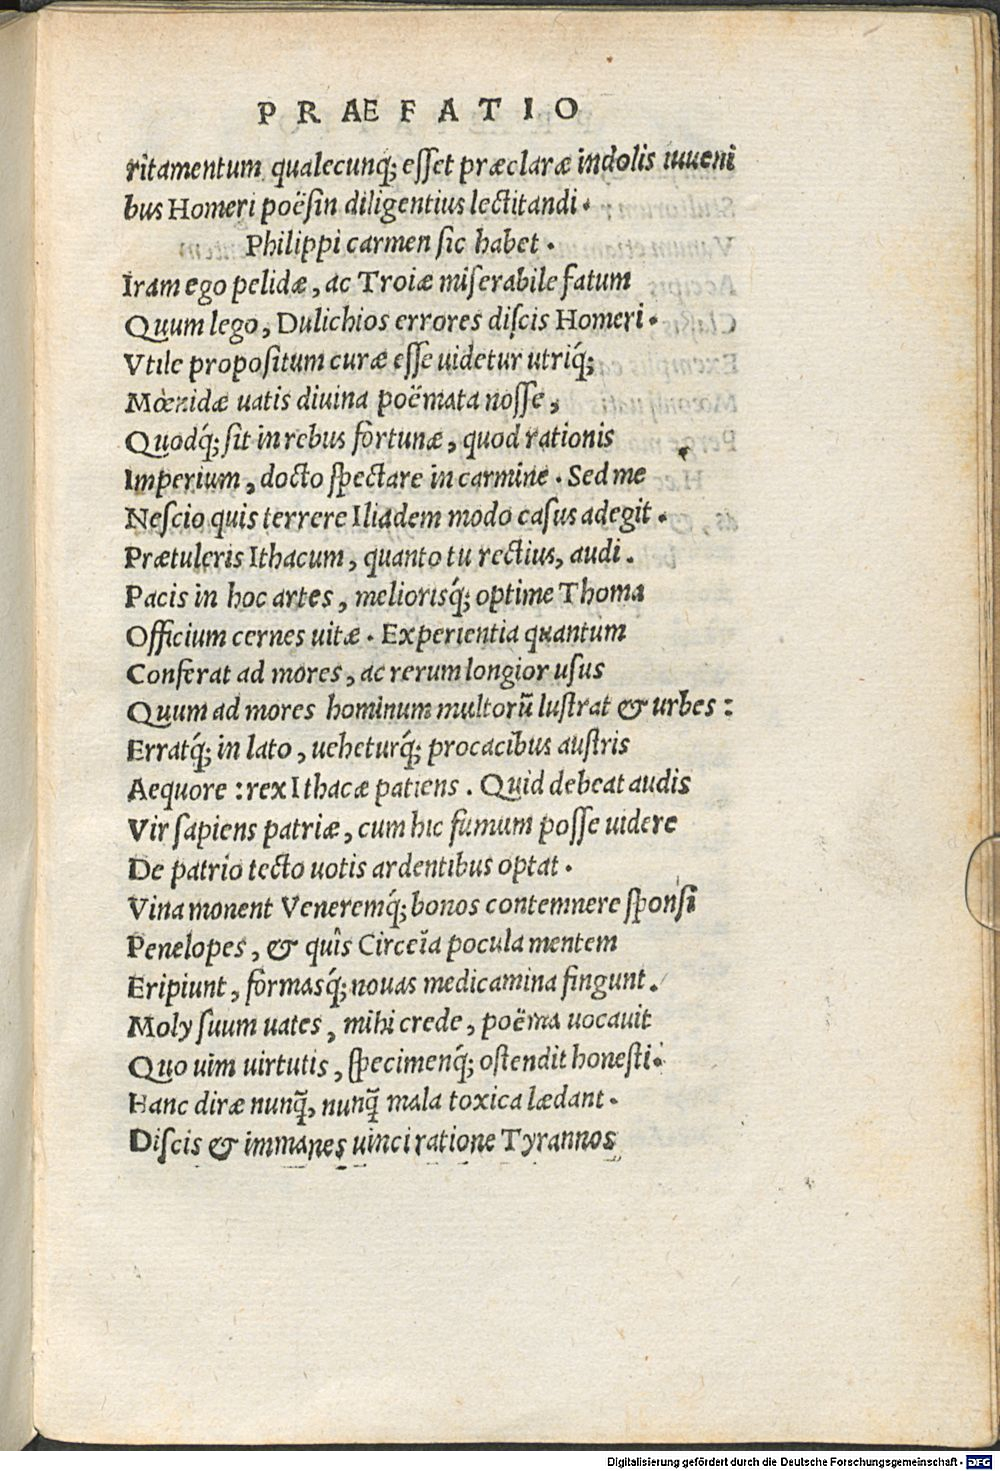 PRÆFATIO
ritamentum qualecunq; esset præclaræ indolis iuueni
bus Homeri poësin diligentius lectitandi.
Philippi carmen sic habet.
Iram ego pelidæ, ac Troiæ miserabile fatum
Quum lego, Dulichios errores discis Homeri.
Vtile propositum curæ esse uidetur utriq́;
Mœnidæ uatis diuina poëmata nosse,
Quodq́; sit in rebus fortunæ, quod rationis
Imperium, docto spectare in carmine. Sed me
Nescio quis terrere Iliadem modo casus adegit.
Prætuleris Ithacum, quanto tu rectius, audi.
Pacis in hoc artes, meliorisq́; optime Thoma
Officium cernes uitæ. Experientia quantum
Conferat ad mores, ac rerum longior usus
Quum ad mores hominum multorũ lustrat & urbes:
Erratq́; in lato, ueheturq́; procacibus austris
Aequore: rex Ithacæ patiens. Quid debeat audis
Vir sapiens patriæ, cum hic fumum posse uidere
De patrio tecto uotis ardentibus optat.
Vina monent Veneremq́; bonos contemnere sponsi
Penelopes, & quîs Circeïa pocula mentem
Eripiunt, formasq́; nouas medicamina fingunt.
Moly suum uates, mihi crede, poëma uocauit
Quo uim uirtutis, specimenq́; ostendit honesti.
Hanc diræ nunq̃, nunq̃ mala toxica lædant.
Discis & immanes uinci ratione Tyrannos
Digitalisierung gefördert durch die Deutsche Forschungsgemeinschaft - DFG